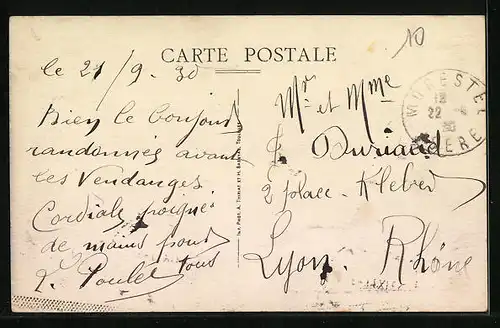 CARTE POSTALE
le 21/9-30
Bien le bonjour
randonnés avant
les Vendanges.
Cordiale poigné
de mains pour
tous
L. Poulet
Mr et Mme
Buriaud
2 place Kleber
Lyon. Rhône
MORESTEL
22
ISERE
10